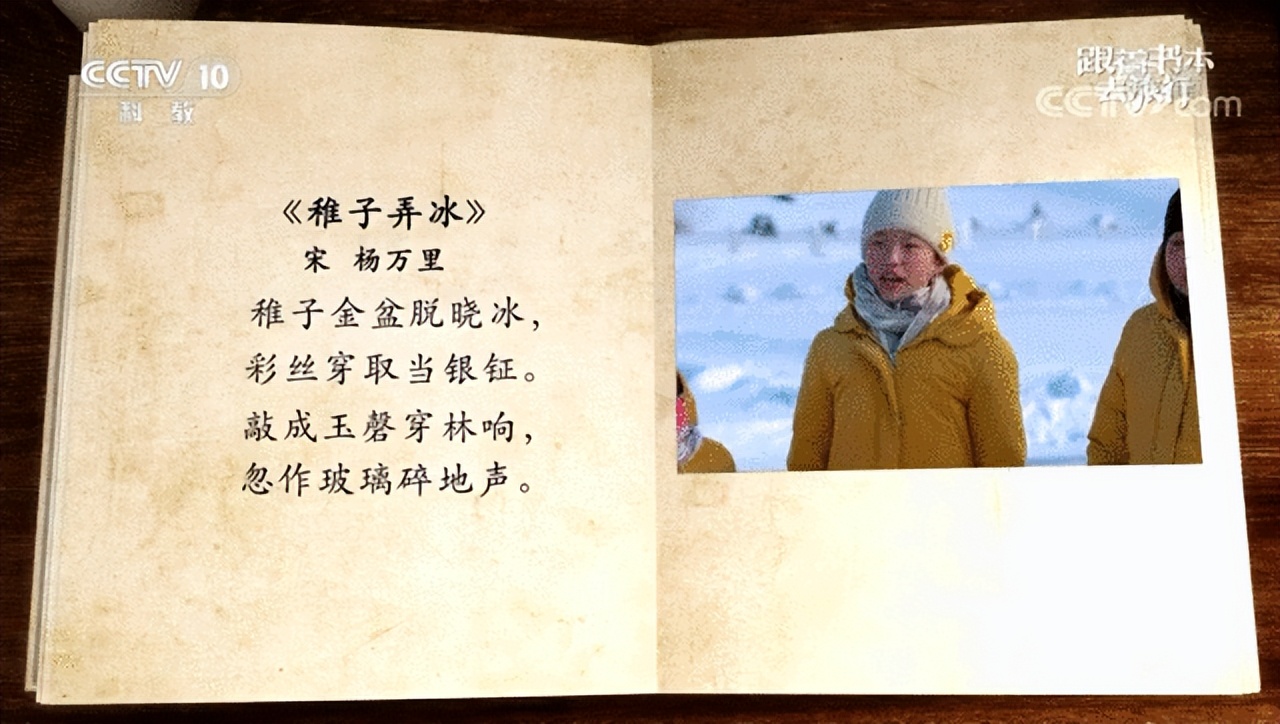 CCTV 10
科教
跟着书本
去旅行
CCTV.com
《稚子弄冰》
宋 杨万里
稚子金盆脱晓冰，
彩丝穿取当银钲。
敲成玉磬穿林响，
忽作玻璃碎地声。